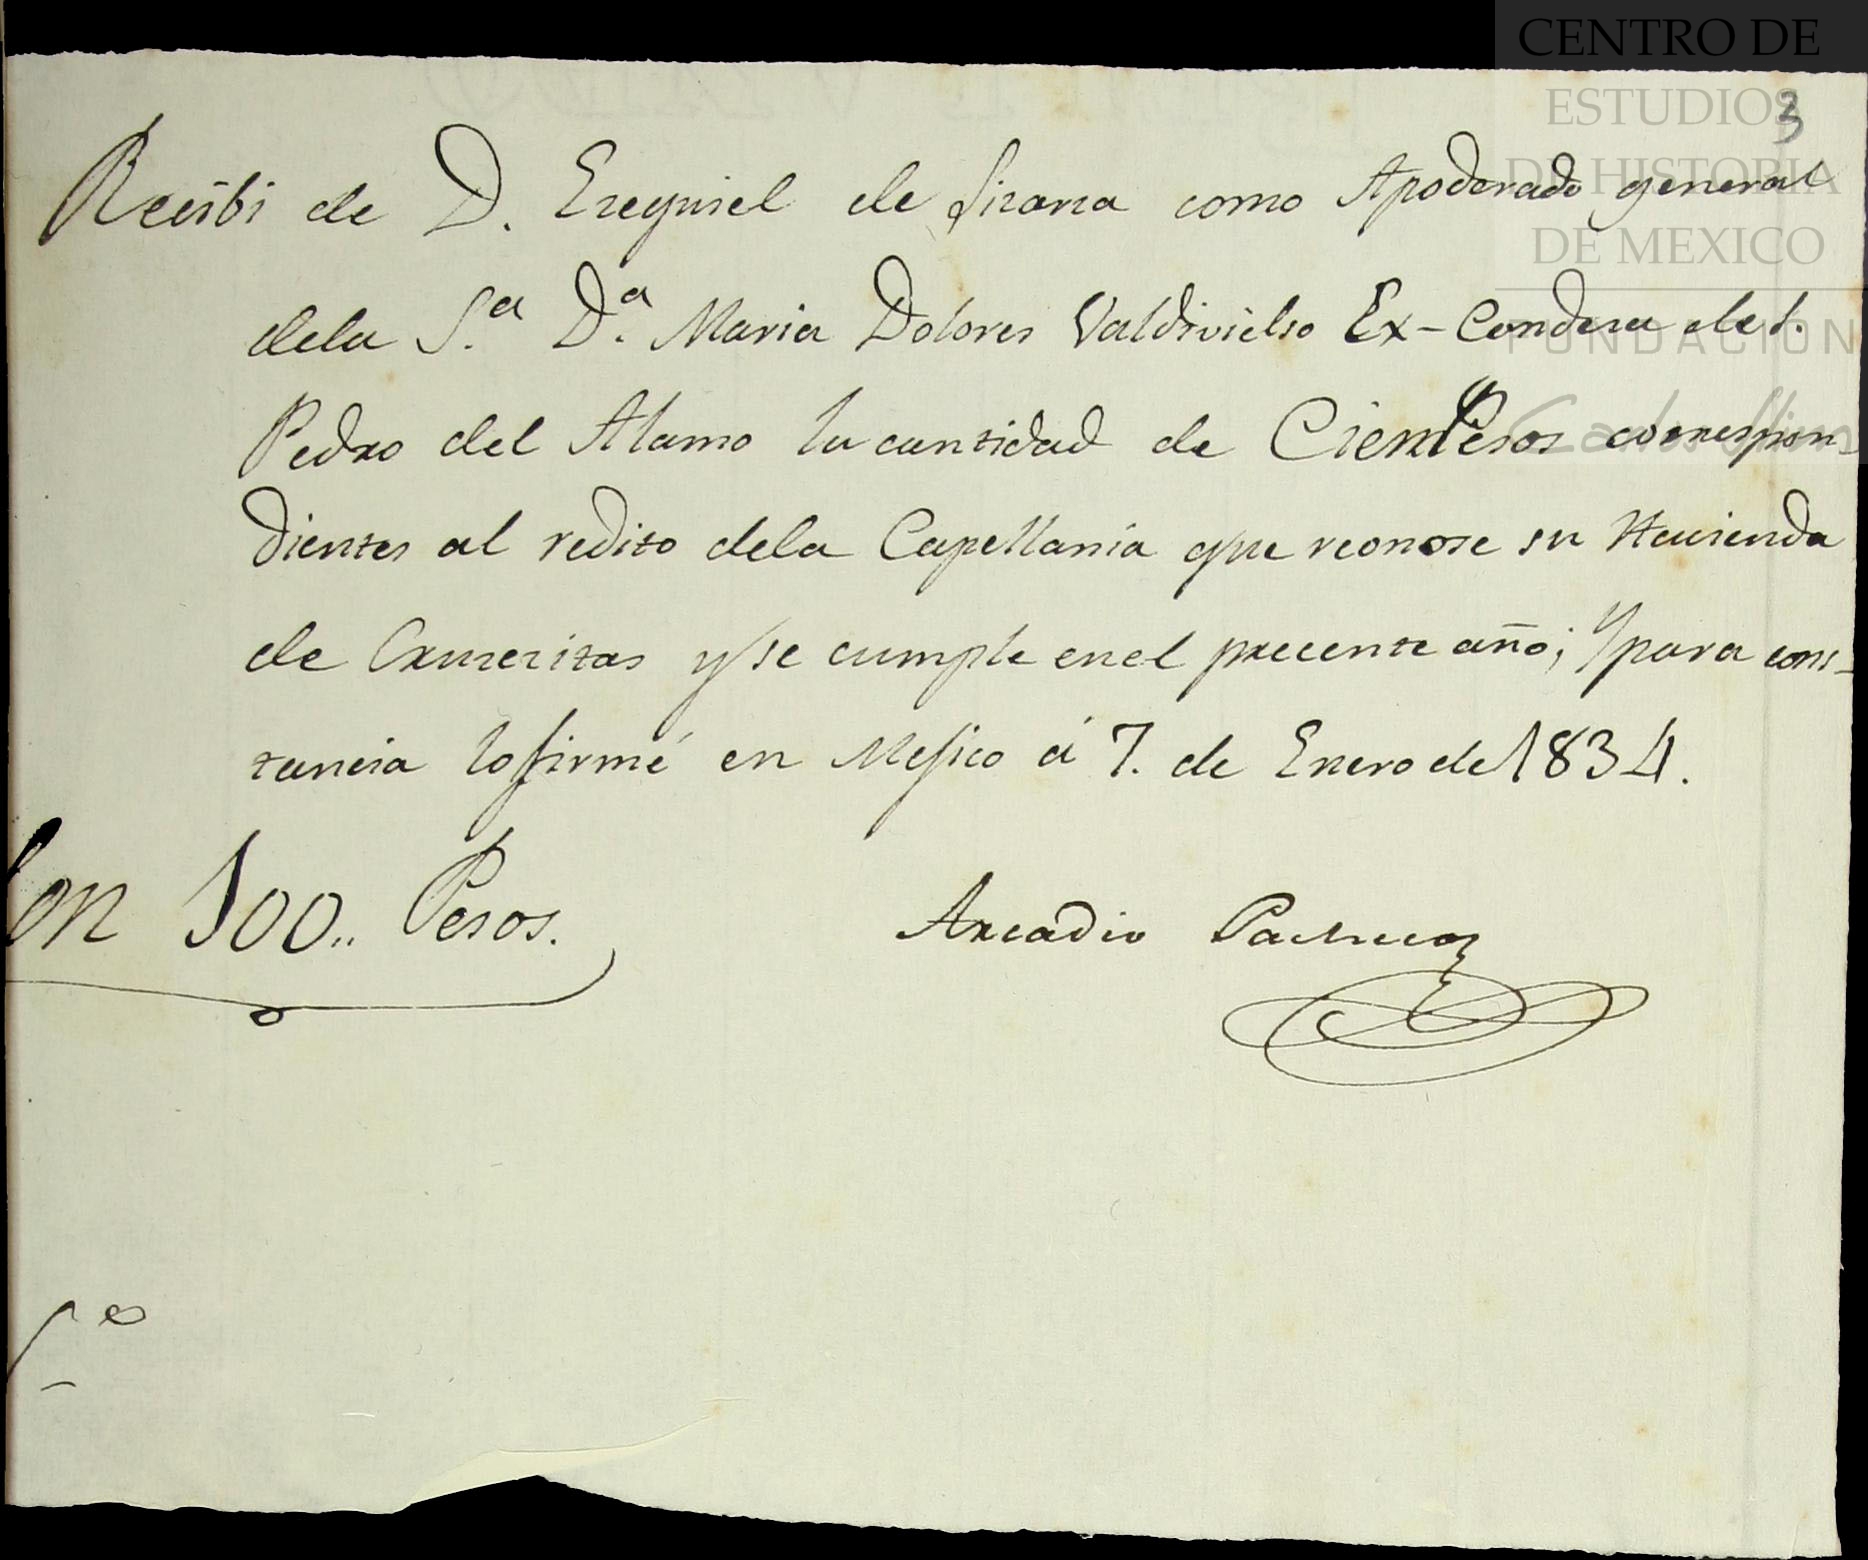 CENTRO DE
ESTUDIOS
DE HISTORIA
DE MEXICO
FUNDACION
Carlos Slim
3
Recibi de D. Ezequiel de Lizarza como Apoderado general
dela S.ª D.ª Maria Dolores Valdivielso Ex-Condesa de S.
Pedro del Alamo la cantidad de Cien Pesos correspon-
dientes al redito dela Capellania que reconose su Hacienda
de Cruzezitas y se cumple enel precente año; Y para cons-
tancia lo firmé en Mejico á 7. de Enero de 1834.
Son 100.. Pesos.
Arcadio Pacheco